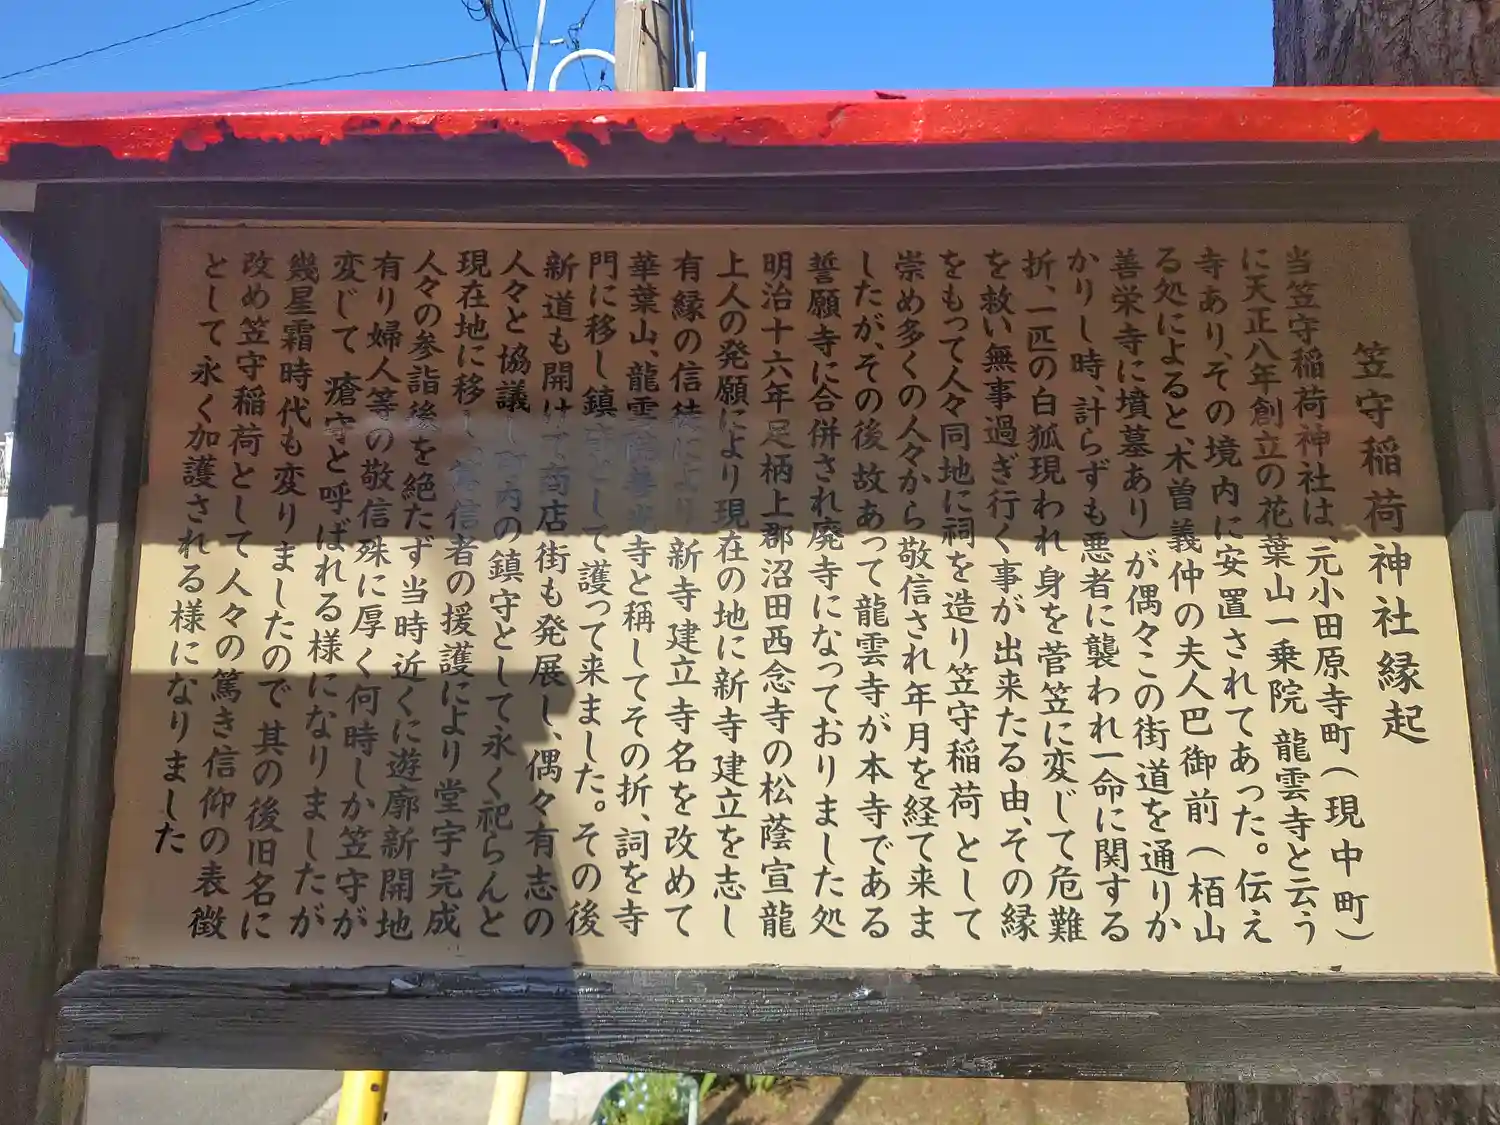 笠守稲荷神社縁起
当笠守稲荷神社は、元小田原寺町(現中町)
に天正八年創立の花葉山一乗院 龍雲寺と云う
寺あり、その境内に安置されてあった。伝え
る処によると、木曽義仲の夫人巴御前(栢山
善栄寺に墳墓あり)が偶々この街道を通りか
かりし時、計らずも悪者に襲われ一命に関する
折、一匹の白狐現われ身を菅笠に変じて危難
を救い無事過ぎ行く事が出来たる由、その縁
をもって人々同地に祠を造り笠守稲荷として
崇め多くの人々から敬信され年月を経て来ま
したが、その後故あって龍雲寺が本寺である
誓願寺に合併され廃寺になっておりました処
明治十六年足柄上郡沼田西念寺の松蔭宣龍
上人の発願により現在の地に新寺建立を志し
有縁の信徒により新寺建立寺名を改めて
華葉山、龍雲院善光寺と稱してその折、詞を寺
門に移し鎮守として護って来ました。その後
新道も開けて商店街も発展し、偶々有志の
人々と協議し町内の鎮守として永く祀らんと
現在地に移し、篤信者の援護により堂宇完成
人々の参詣後を絶たず当時近くに遊廓新開地
有り婦人等の敬信殊に厚く何時しか笠守が
変じて 瘡守と呼ばれる様になりましたが
幾星霜時代も変りましたので 其の後旧名に
改め笠守稲荷として人々の篤き信仰の表徴
として永く加護される様になりました